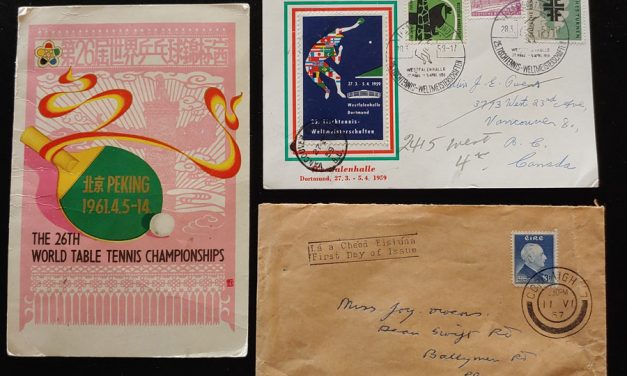 第26届世界乒乓球錦标赛
北京 PEKING
1961.4.5-14
THE 26TH
WORLD TABLE TENNIS CHAMPIONSHIPS
27. 3. - 5. 4. 1959
Westfalenhalle
Dortmund
25. Tischtennis-
Weltmeisterschaften
alenhalle
Dortmund, 27. 3. - 5. 4. 1959
WESTFALENHALLE
WESTFALENHALLE
J. E. Owens
3773 West 23rd Ave,
Vancouver 8.,
B. C.
Canada
2415 West
4th
Lá a Chéad Eisiúna
First Day of Issue
ÉIRE
11 VI
57
Miss Joy Owens
Dean Swift Rd
Ballymun Rd